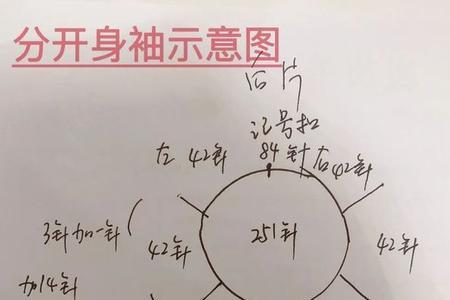 分开身袖示意图
后片
记号扣
左 42针 84针 右42针
3针加一针
42针 251针 42针
加14针